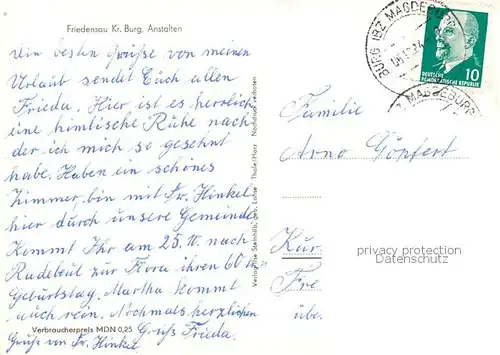 Friedensau Kr. Burg, Anstalten
BURG (BZ. MAGDEBURG)
DEUTSCHE
DEMOKRATISCHE REPUBLIK
10
MAGDEBURG
Die besten Grüße von meinen
Urlaub sendet Euch allen
Frieda. Hier ist es herrlich
eine himlische Ruhe nach
der ich mich so gesehnt
habe. Haben ein schönes
Zimmer, bin mit Fr. Hinkel
hier durch unsere Gemeinde
Kommt Ihr am 25. nach
Radebeul zur Flora ihren 60
Geburtstag. Martha kommt
auch rein. Nochmals herzlichen
Gruß Frieda.
Gruß von Fr. Hinkel
Verbraucherpreis MDN 0,25
Verlag Ilse Steinholz, geb. Lohse Thale/Harz Nachdruck verboten
Familie
Arno Göpfert
Kur
Fre
übe
privacy protection
Datenschutz